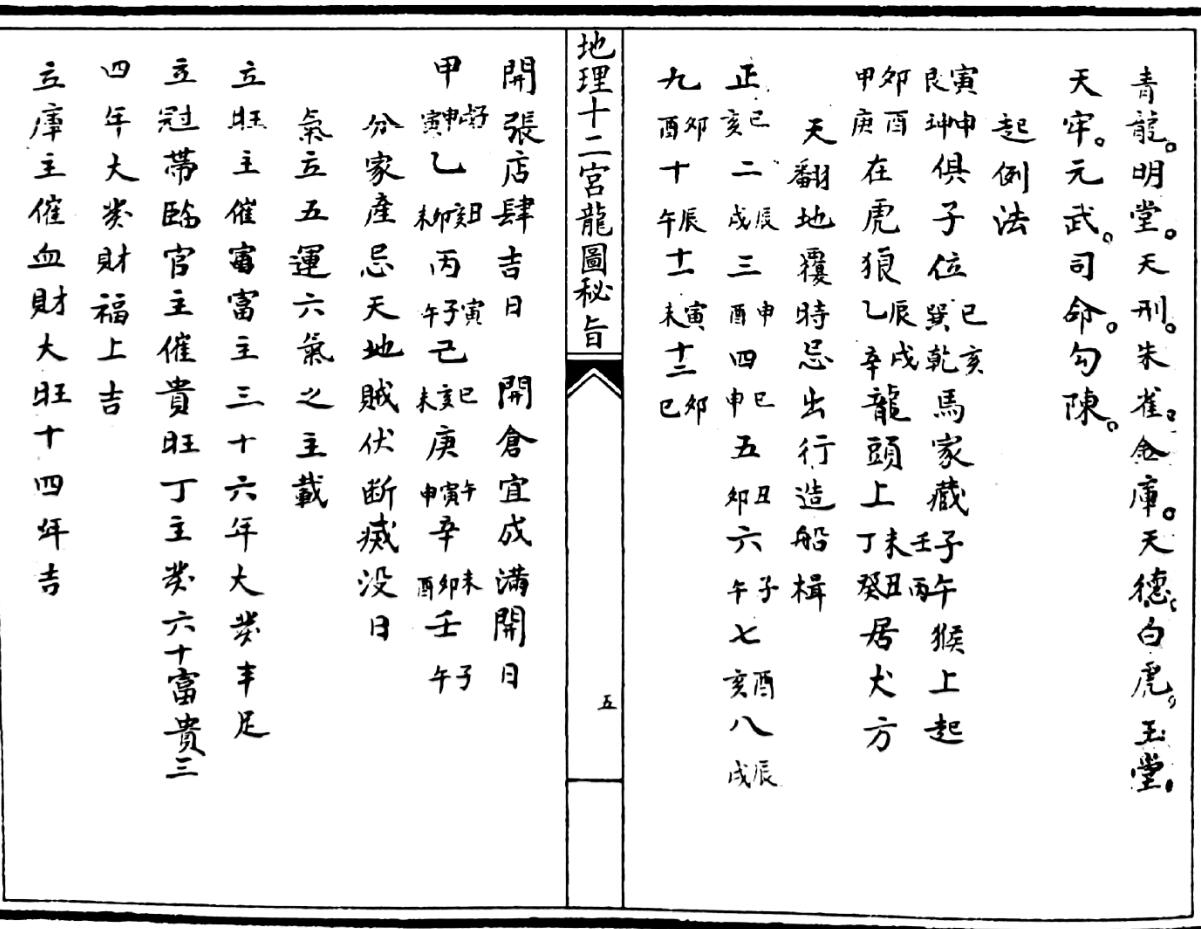 青龍。明堂。天刑。朱雀。金庫。天德。白虎。玉堂。
天牢。元武。司命。勾陳。
起例法
寅申艮坤俱子位巳亥巽乾馬家藏子午壬丙猴上起
卯酉甲庚在虎狼辰戌乙辛龍頭上未丑丁癸居犬方
天翻地覆時忌出行造船楫
正巳亥二辰戌三申酉四巳申五丑卯六子午七酉亥八辰戌
九卯酉十辰午十一寅未十二卯巳
地理十二宮龍圖秘旨
五
開張店肆吉日 開倉宜成滿開日
甲申寅乙亥卯未丙寅子午己巳亥未庚午寅申辛未卯酉壬子午
分家產忌天地賊伏断滅没日
氣立五運六氣之主載
立旺主催富富主三十六年大發丰足
立冠帶臨官主催貴旺丁主發六十富貴三
四年大發財福上吉
立庫主催血財大旺十四年吉